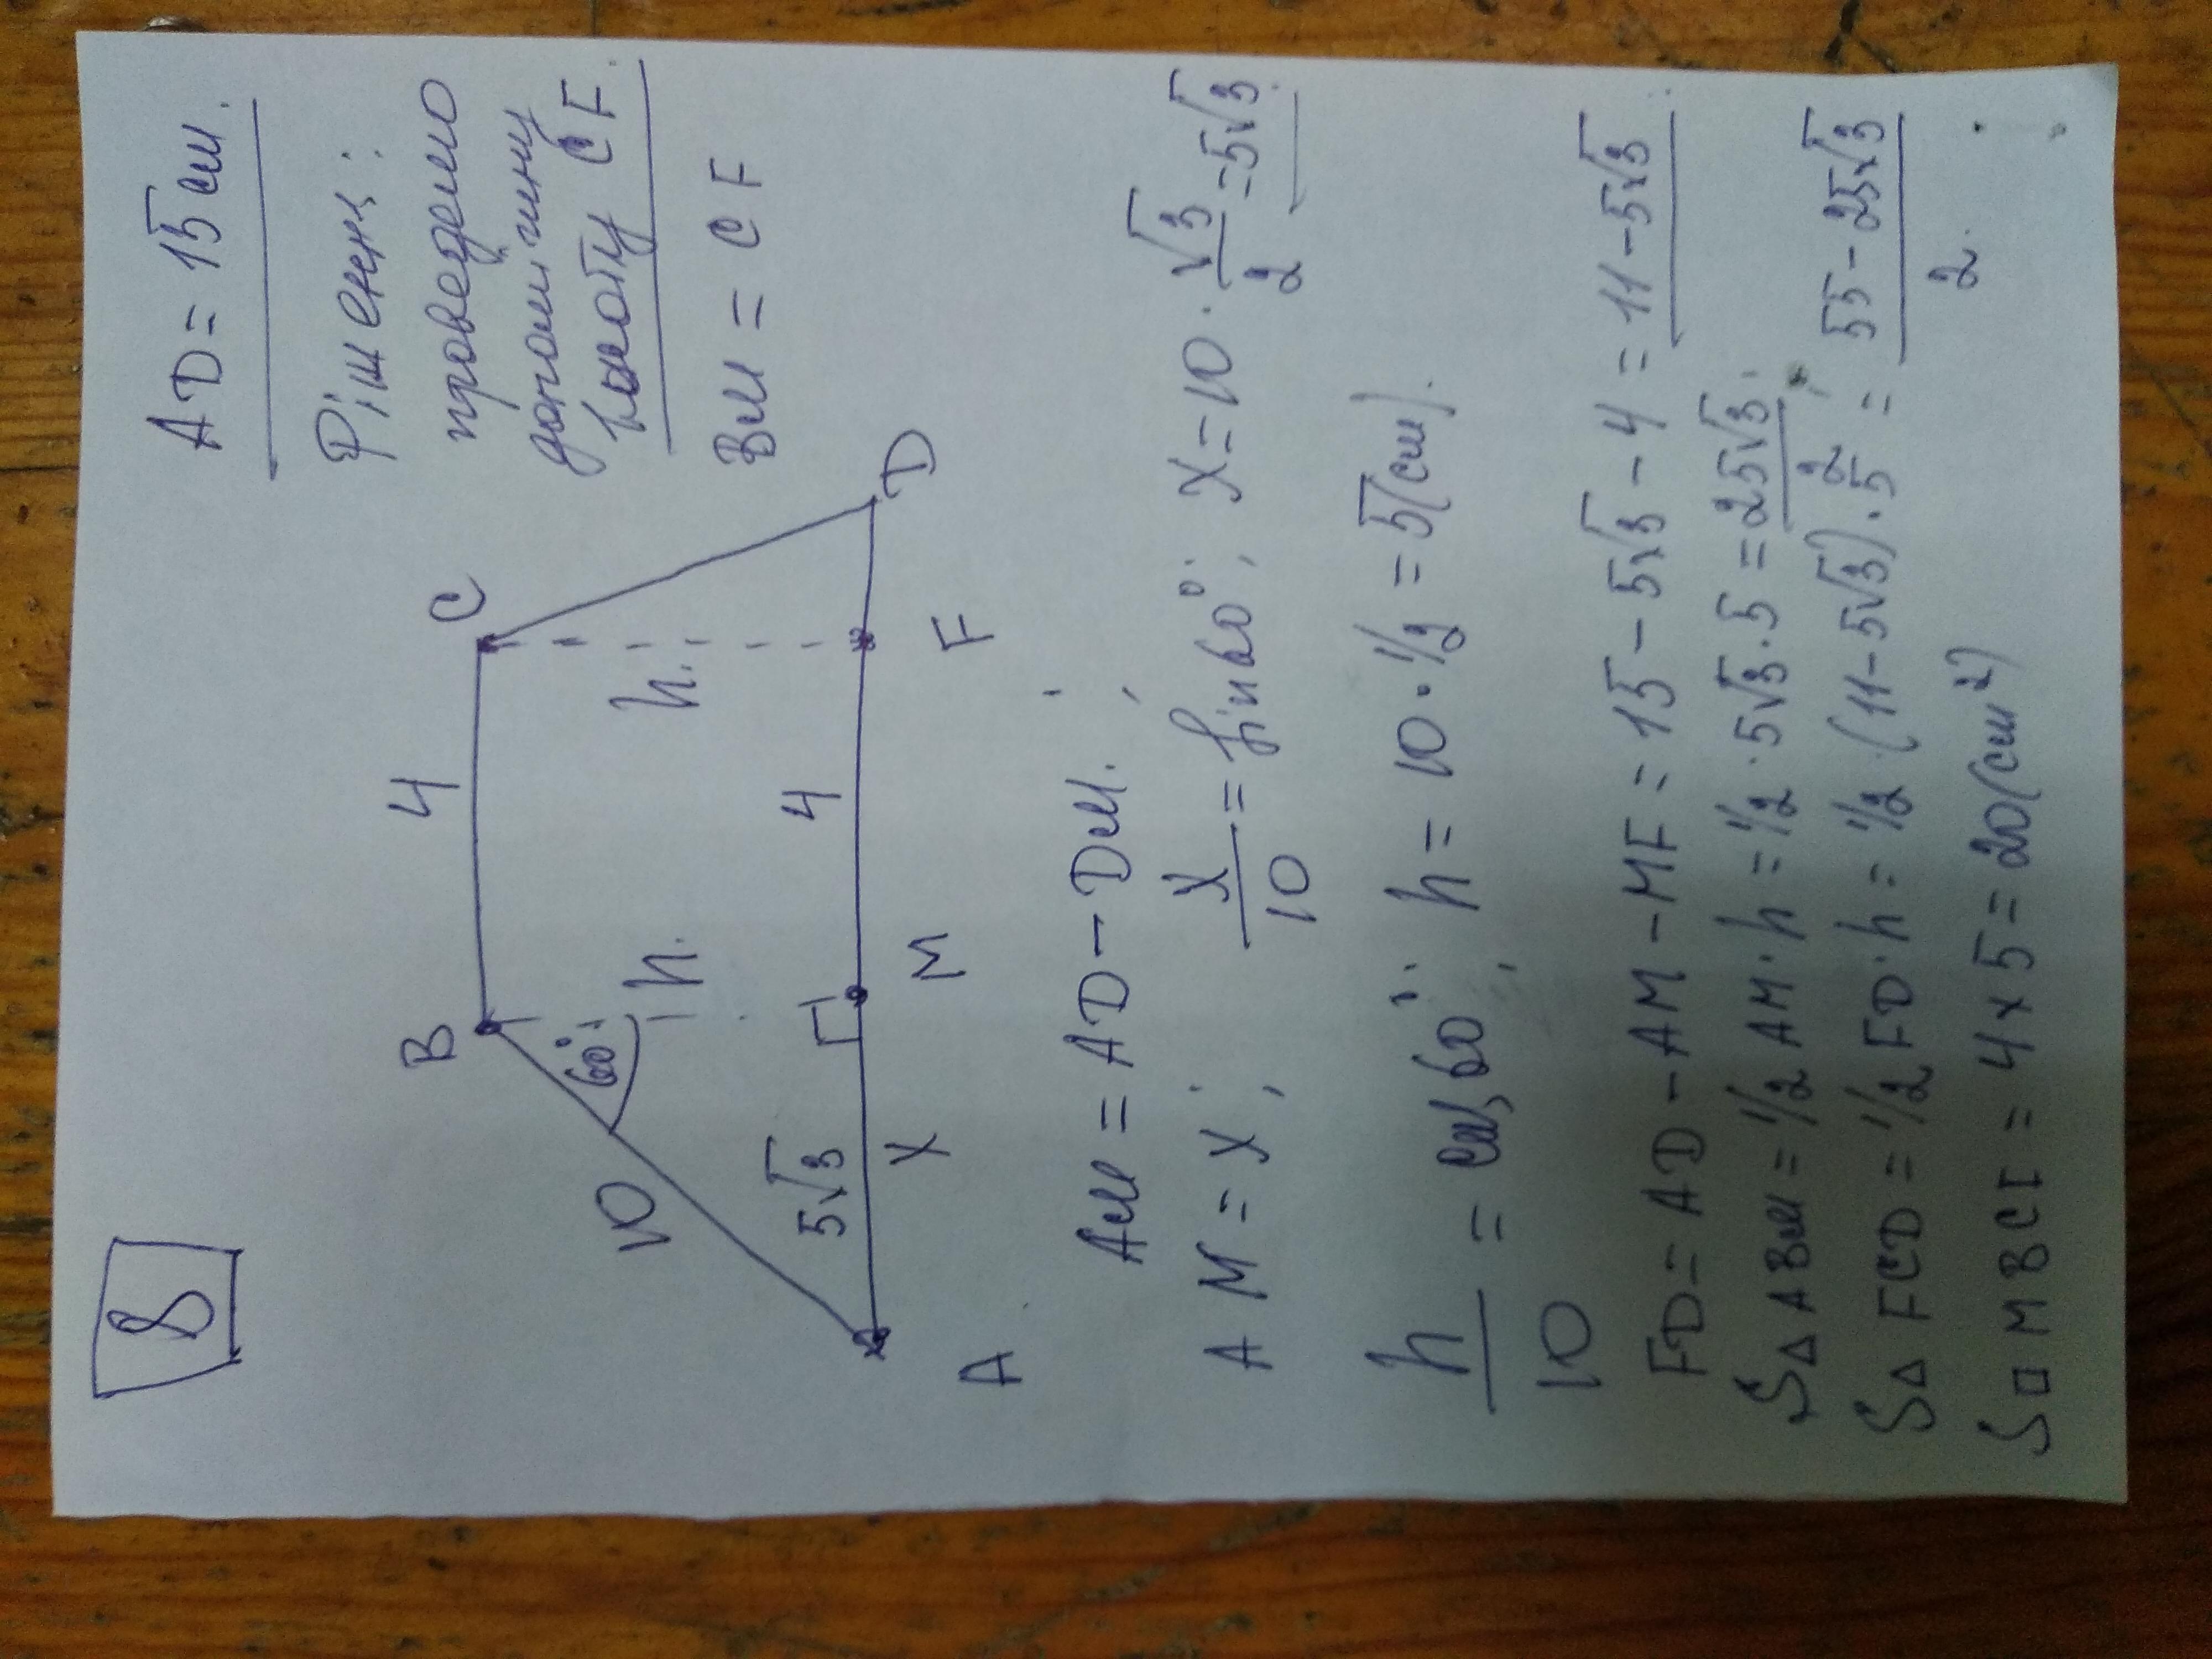 8
AD = 15 см.
Рішенн:
проведемо
допоміжну
висоту CF.
Bм = CF
B 4 C
60°
10 h. h.
5√3 4
A X M F D
Aм = AD - Dм.;
AM = X; X/10 = sin 60°; X = 10 · √3/2 = 5√3
h/10 = cos 60°; h = 10 · 1/2 = 5 (см).
FD = AD - AM - MF = 15 - 5√3 - 4 = 11 - 5√3.
S△ABм = 1/2 AM · h = 1/2 · 5√3 · 5 = 25√3/2;
S△FCD = 1/2 FD · h = 1/2 · (11 - 5√3) · 5 = 55 - 25√3/2.;
S□MBCF = 4 × 5 = 20 (см²)